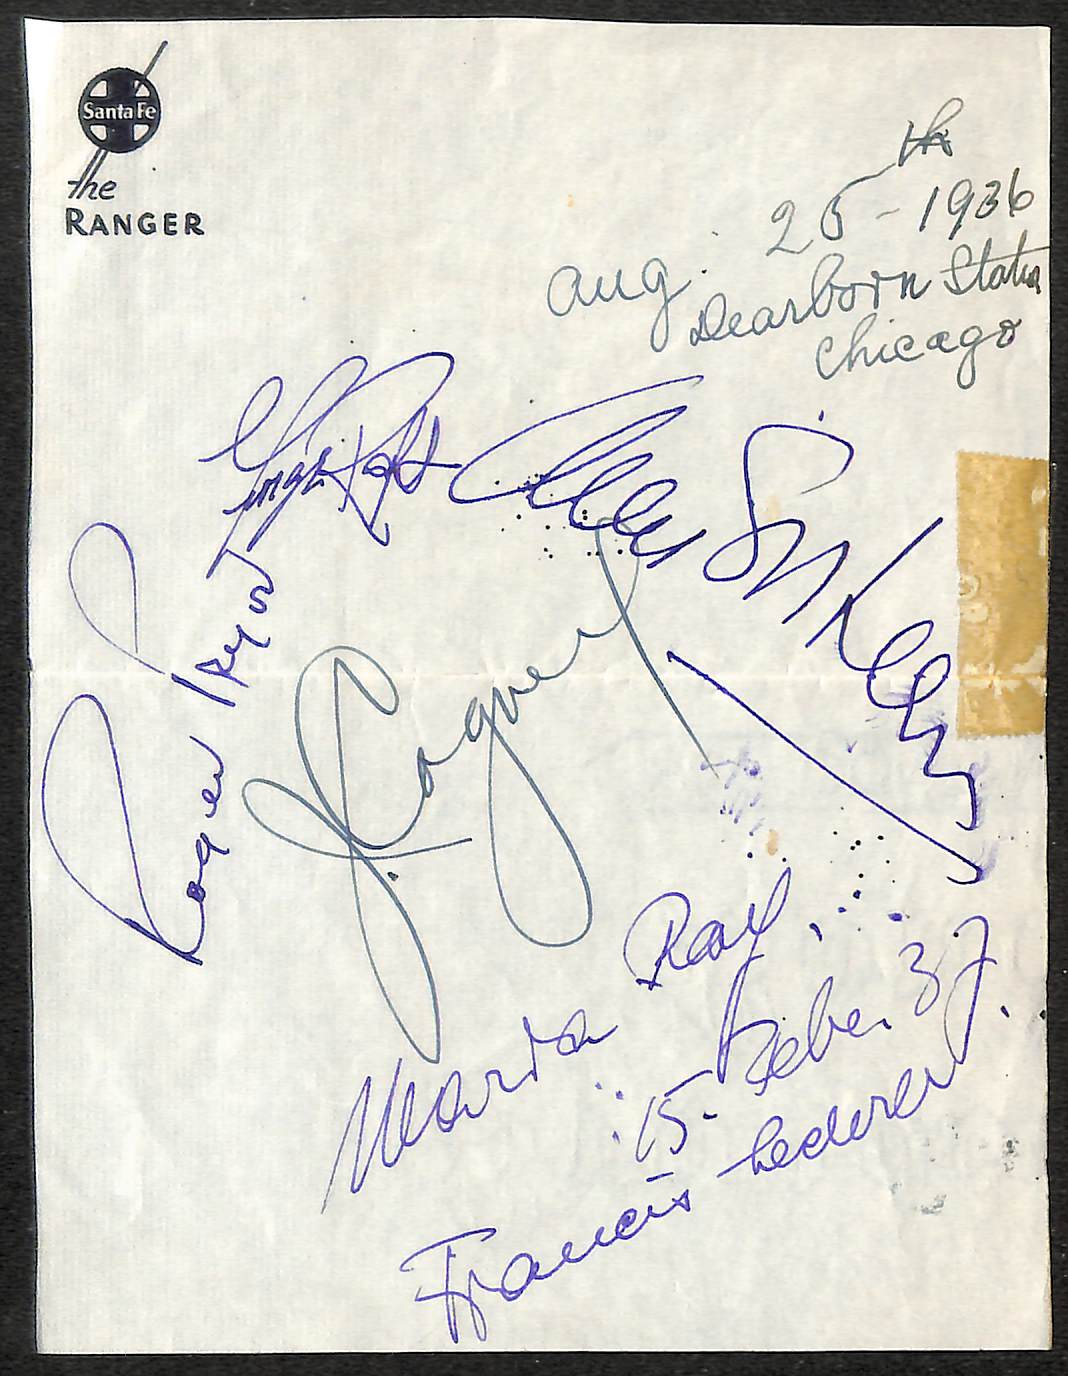 Santa Fe
the
RANGER
Aug. 25th-1936
Dearborn Station
Chicago
George Raft
Roger Pryor
J. Cagney
Maria Ray
15. Febr. 37.
Francis Lederer